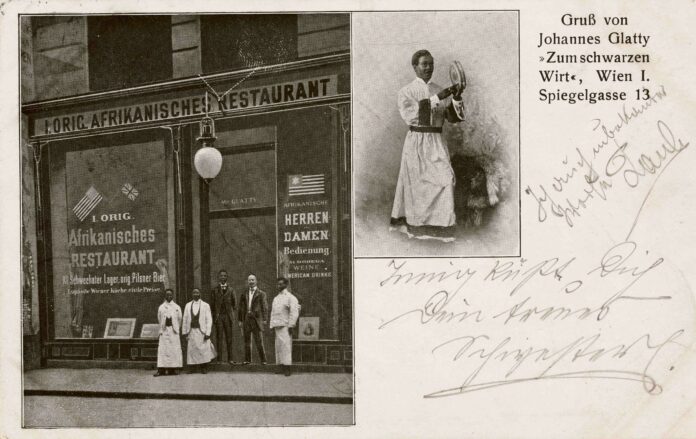 Gruß von
Johannes Glatty
»Zum schwarzen
Wirt«, Wien I.
Spiegelgasse 13
I. ORIG. AFRIKANISCHES RESTAURANT
I. ORIG.
Afrikanisches
RESTAURANT
Kl. Schwechater Lager, orig. Pilsner Bier
Wiener Küche, civile Preise
Mr. GLATTY
AFRIKANISCHE
HERREN
DAMEN
Bedienung
WEINE
AMERICAN DRINKS
Innig küßt Dich
Dein treues
Schwesterl.